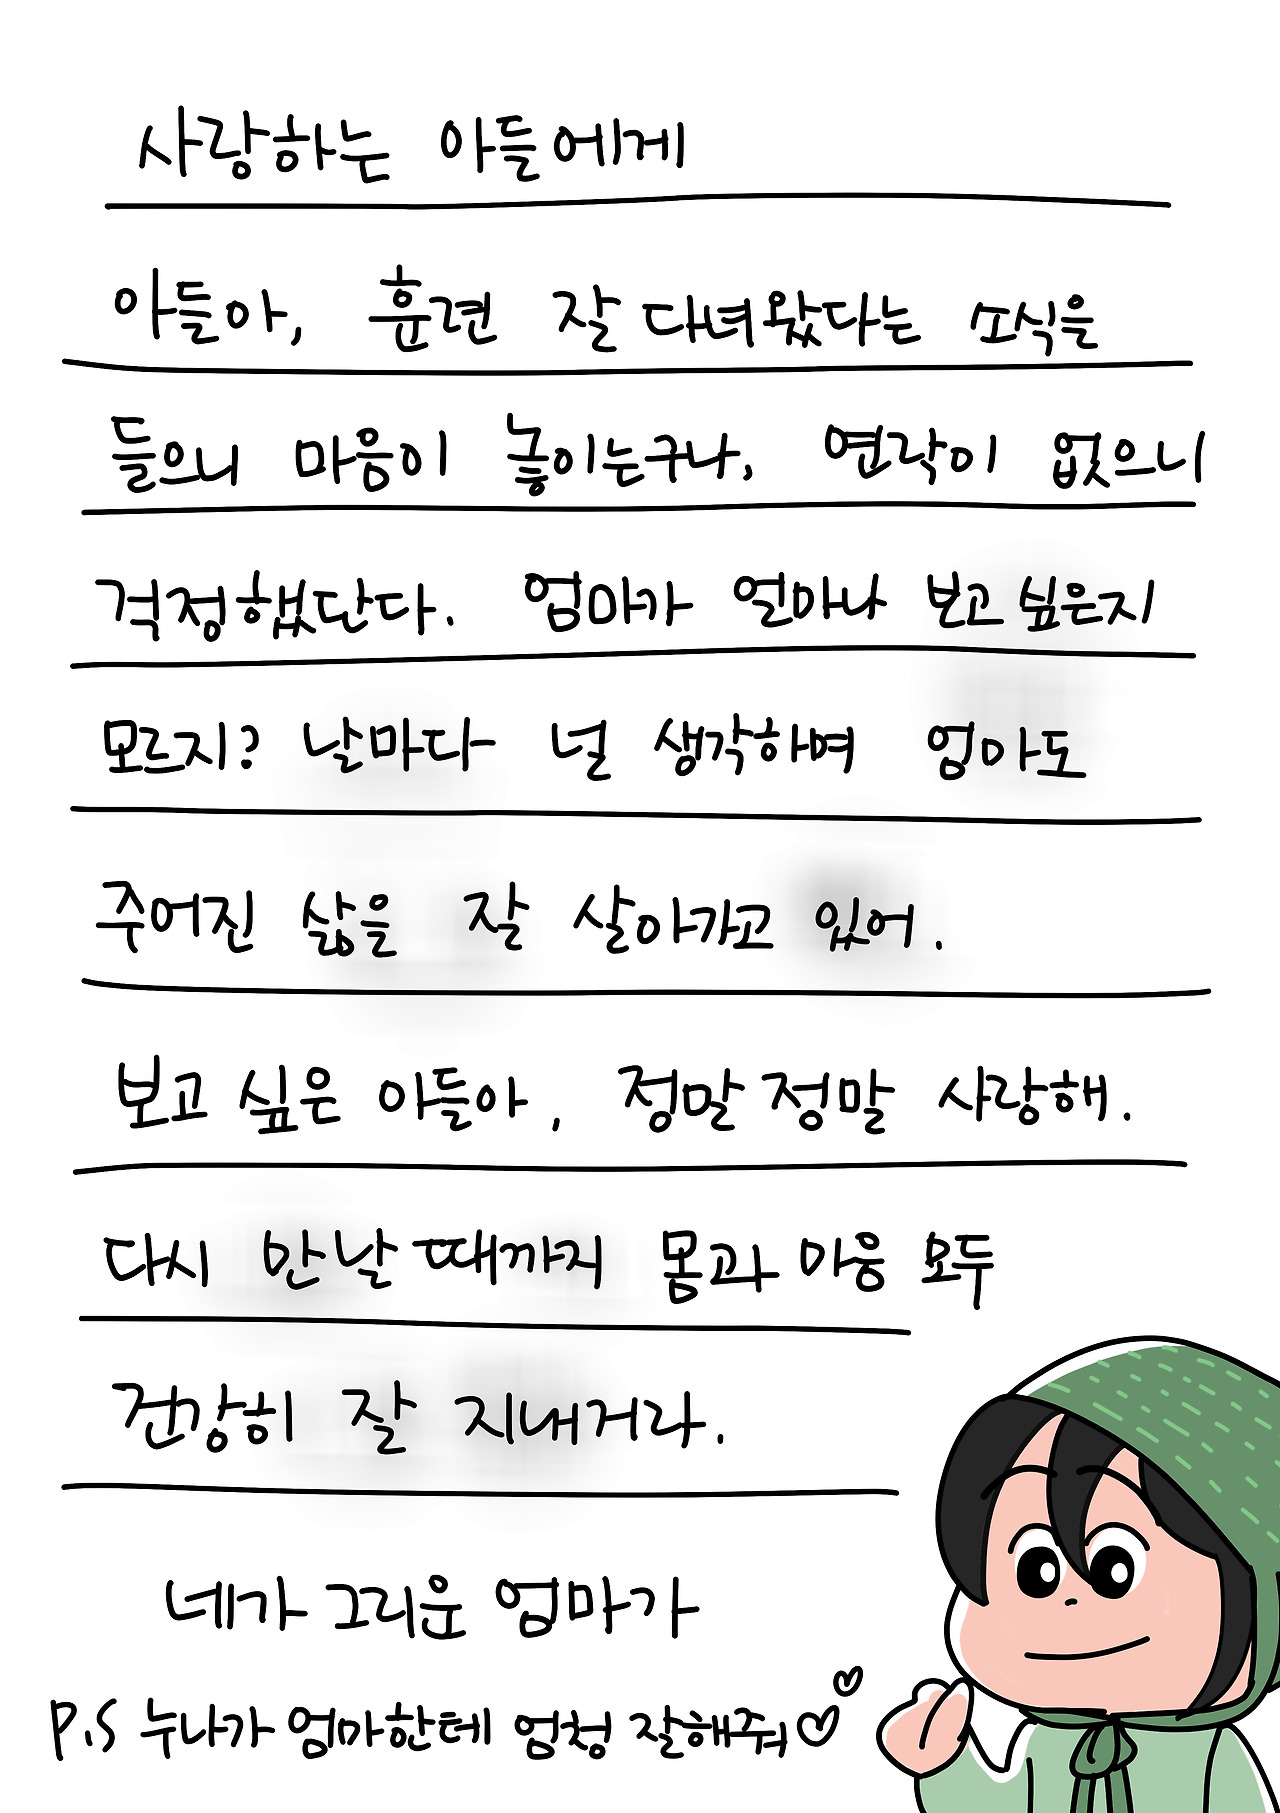 사랑하는 아들에게
아들아, 훈련 잘 다녀왔다는 소식을
들으니 마음이 놓이는구나, 연락이 없으니
걱정했단다. 엄마가 얼마나 보고 싶은지
모르지? 날마다 널 생각하며 엄마도
주어진 삶을 잘 살아가고 있어.
보고 싶은 아들아, 정말 정말 사랑해.
다시 만날 때까지 몸과 마음 모두
건강히 잘 지내거라.
네가 그리운 엄마가
P.S 누나가 엄마한테 엄청 잘해줘♡♡